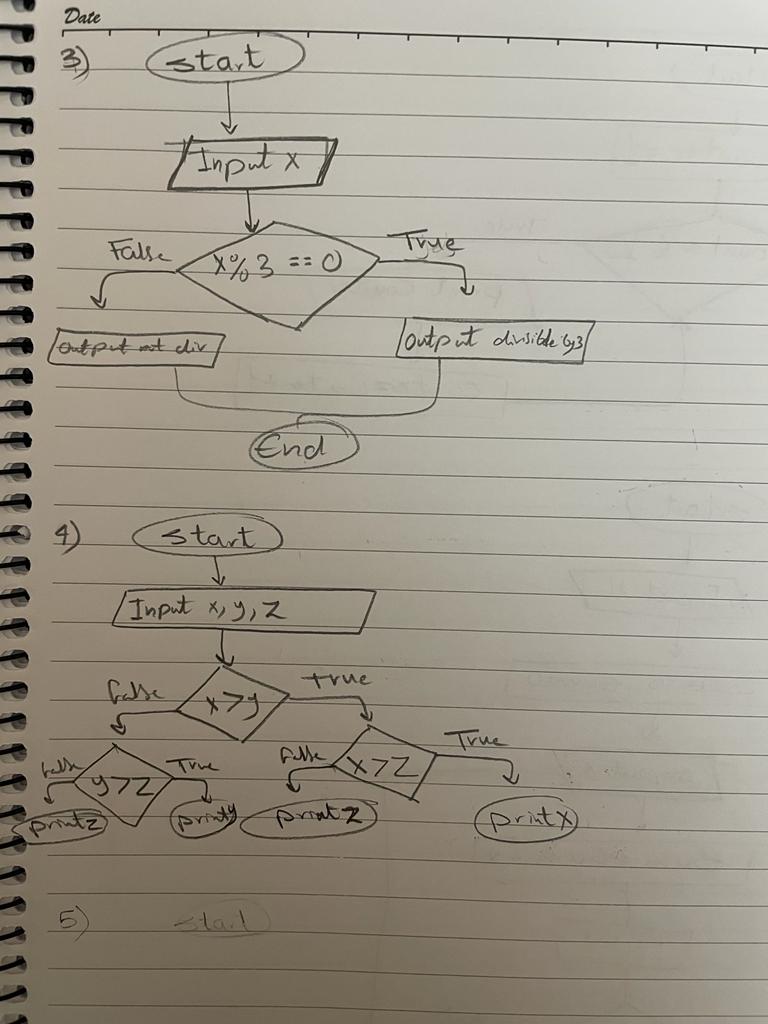 Date
3) start
Input x
False x%3 == 0 True
output not div
output divisible by3
End
4) start
Input x, y, z
false x>y true
false y>z True
false x>z True
print z print y print z print x
5) start